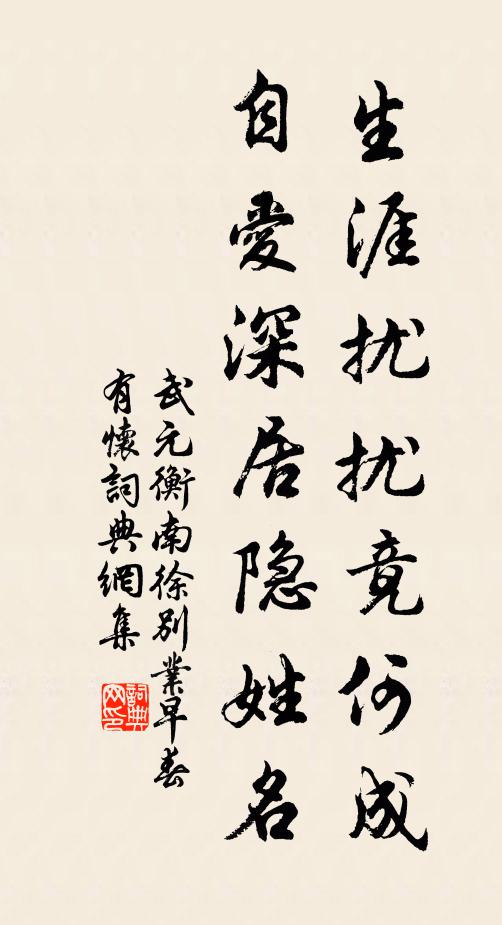 生涯扰扰竟何成
自愛深居隐姓名
武元衡南徐別業早春
有懷詞典網集
詞典网印